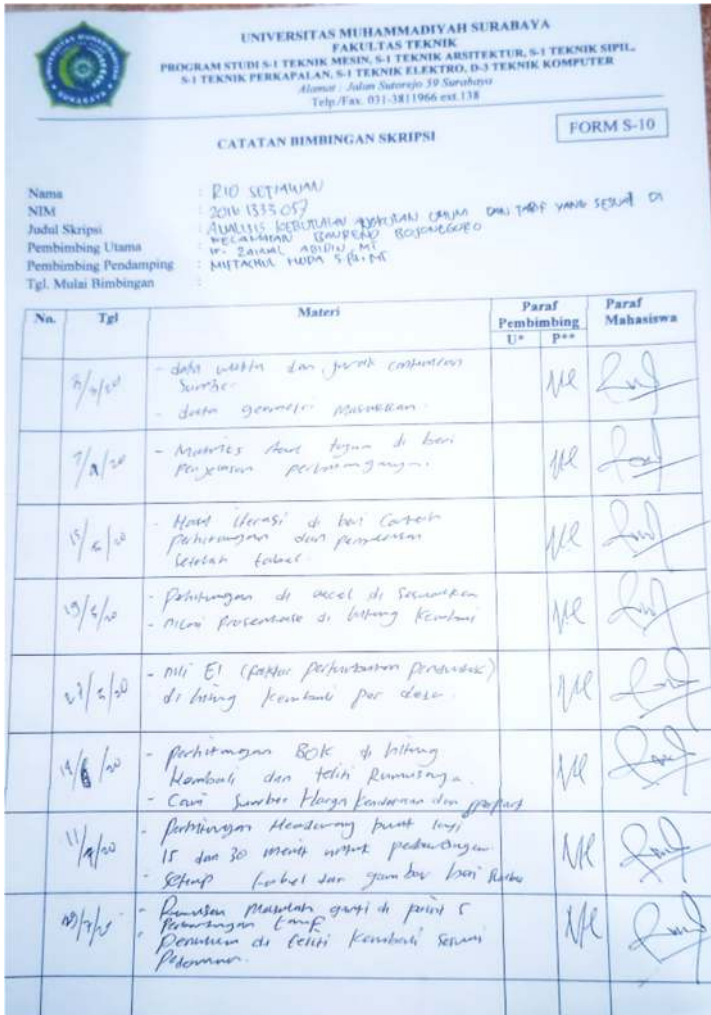 UNIVERSITAS MUHAMMADIYAH SURABAYA
FAKULTAS TEKNIK
PROGRAM STUDI S-1 TEKNIK MESIN, S-1 TEKNIK ARSITEKTUR, S-1 TEKNIK SIPIL,
S-1 TEKNIK PERKAPALAN, S-1 TEKNIK ELEKTRO, D-3 TEKNIK KOMPUTER
Alamat : Jalan Sutorejo 59 Surabaya
Telp./Fax. 031-3811966 ext.138
FORM S-10
CATATAN BIMBINGAN SKRIPSI
Nama : RIO SETIAWAN
NIM : 2016 1333 057
Judul Skripsi : ANALISIS KEBUTUHAN ANGKUTAN UMUM DAN TARIF YANG SESUAI DI
KECAMATAN BAURENO BOJONEGORO
Pembimbing Utama : Ir. ZAINAL ABIDIN, MT
Pembimbing Pendamping : MIFTACHUL HUDA S.Pd. MT
Tgl. Mulai Bimbingan :
No. Tgl Materi Paraf Pembimbing Paraf Mahasiswa
U* P**
- data waktu dan jarak
Sumber
- data geometri masukkan
- Matriks tujuan di beri
penjelasan
- Hasil iterasi di beri Contoh
perhitungan dan penjelasan
setelah tabel.
19/5/20 - Perhitungan di excel di sesuaikan
- nilai prosentase di hitung kembali
- nili Ei (faktor pertumbuhan penduduk)
di hitung kembali per desa.
- perhitungan BOK di hitung
kembali dan teliti Rumusnya.
- Cari Sumber Harga kendaraan dan
- Perhitungan Headway buat lagi
15 dan 30 menit untuk
- setiap tabel dan gambar beri sumber
- Rumusan Masalah ganti di point 5
tarif
- Penulisan di teliti kembali sesuai
Pedoman.